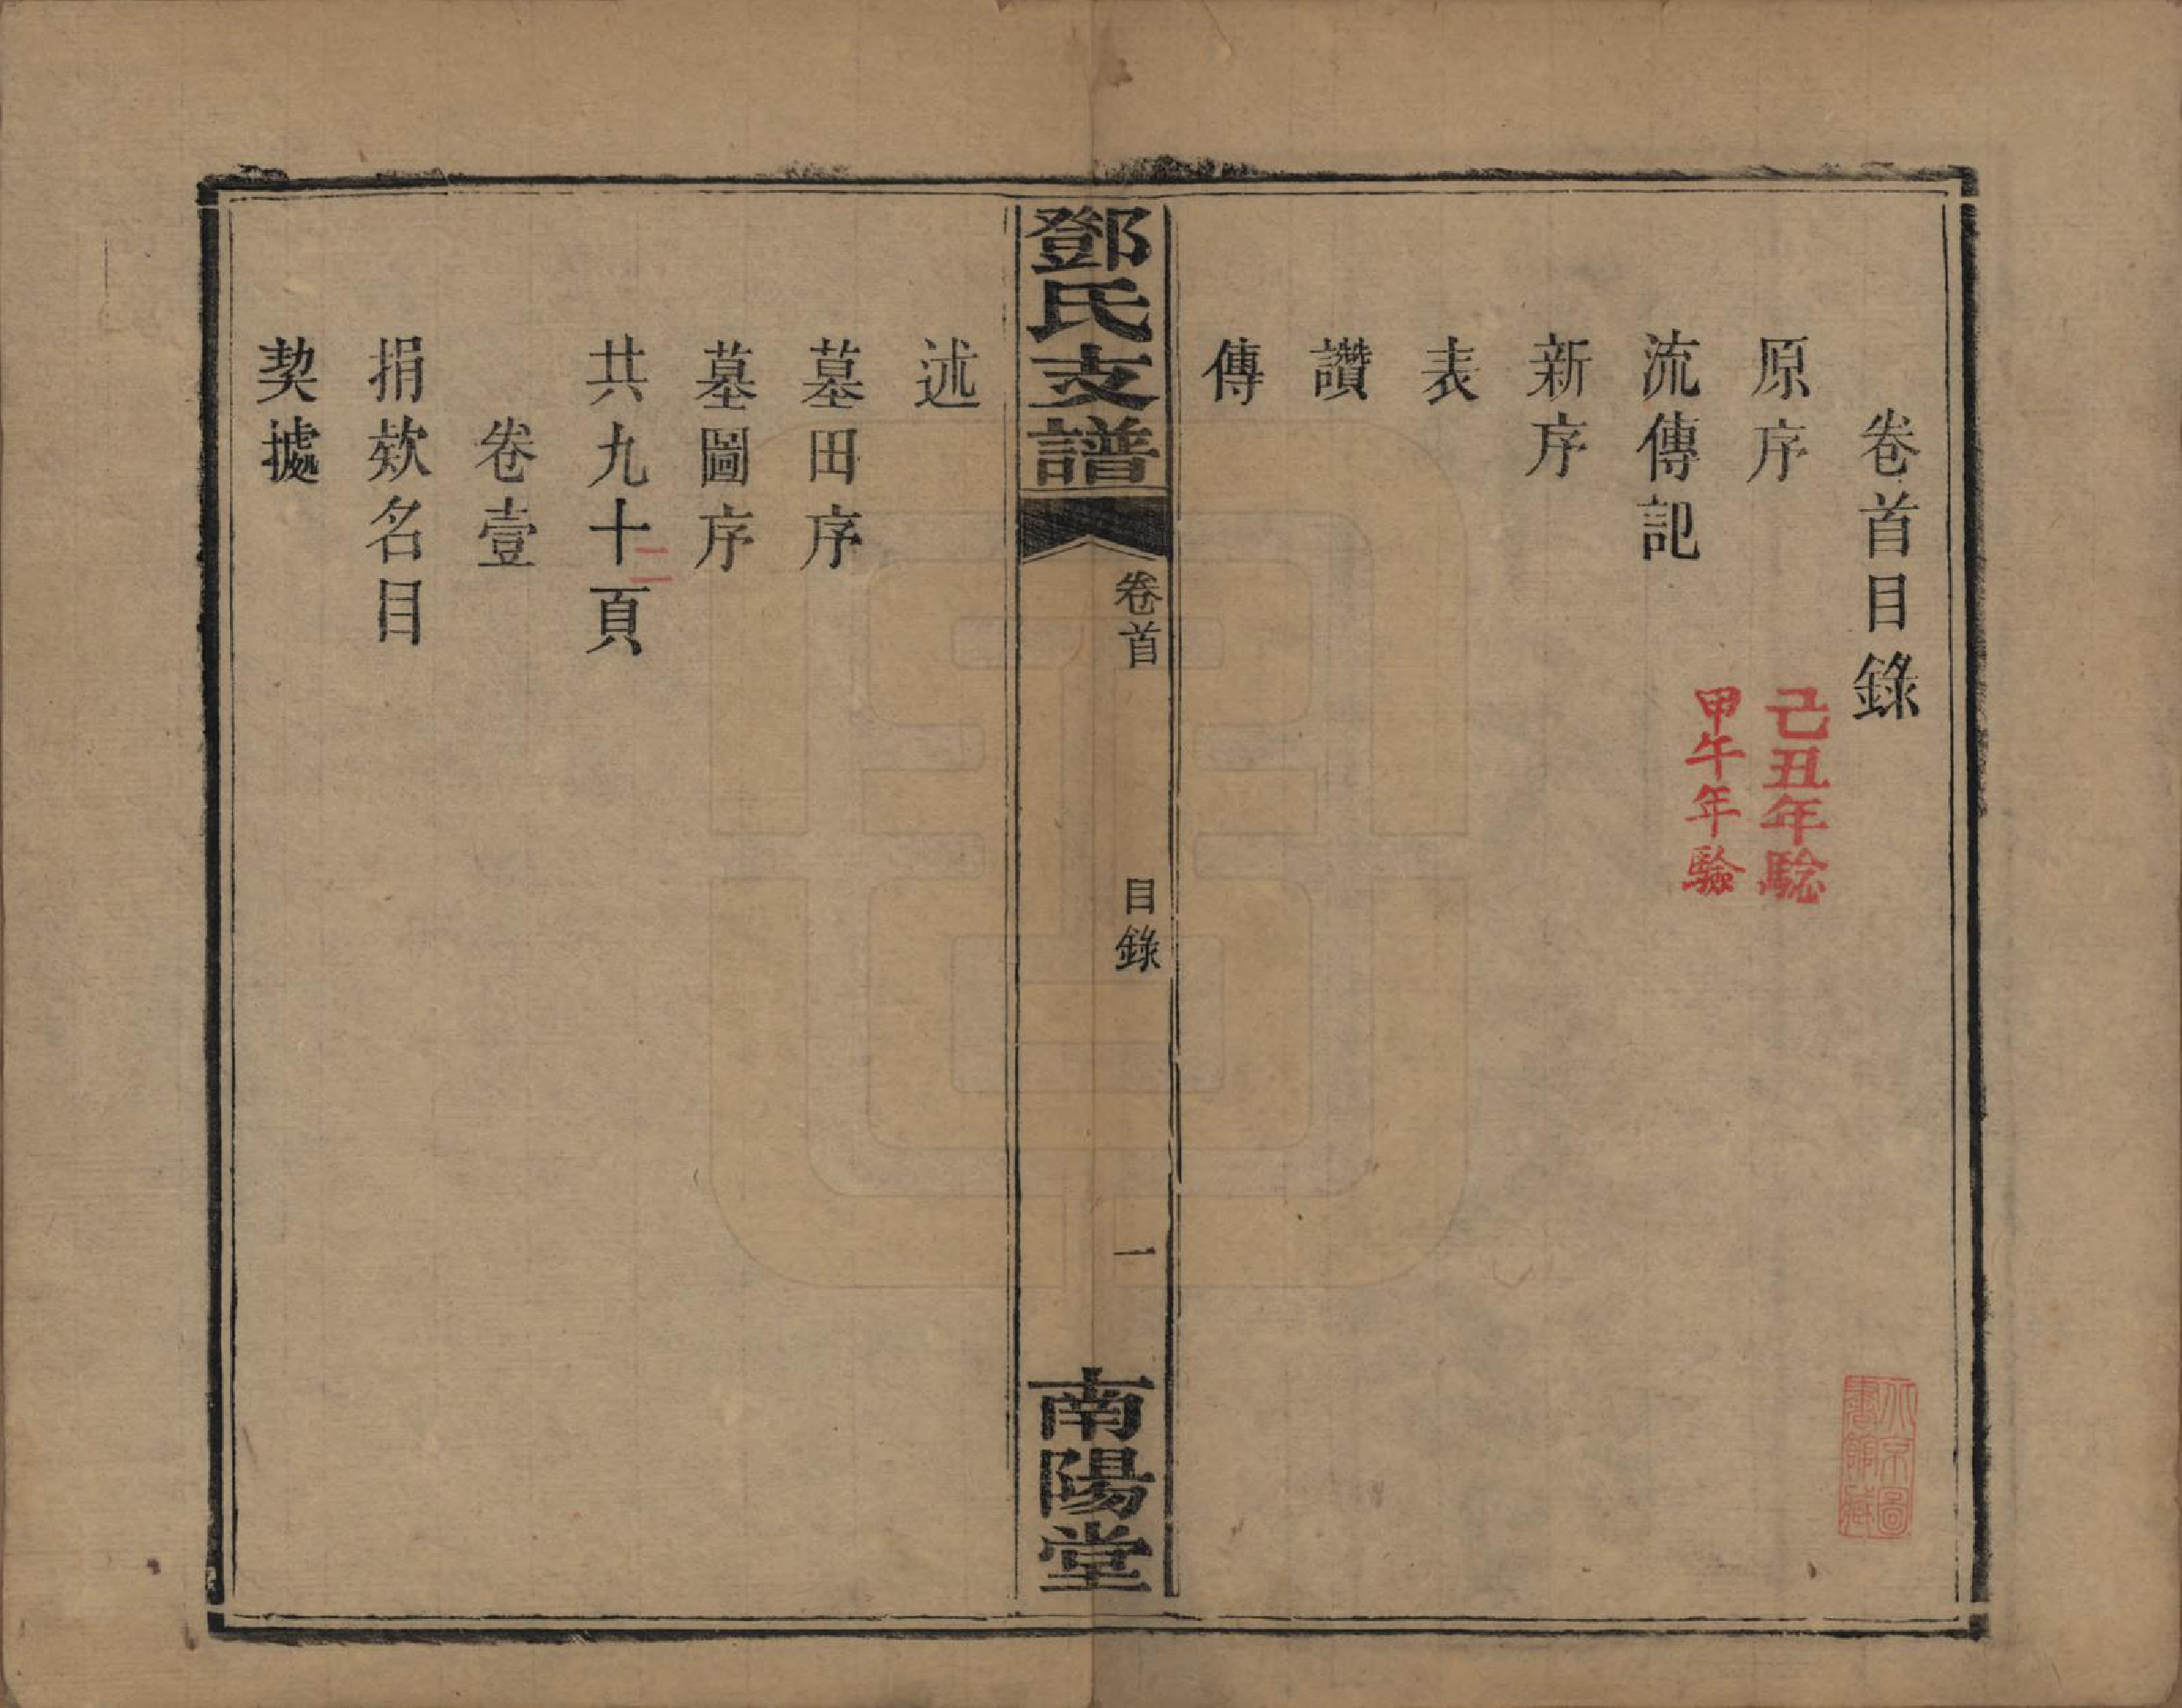 卷首目錄
原序
己丑年驗
流傳記
甲午年驗
新序
表
讚
傳
鄧氏支譜
卷首
目錄
一
南陽堂
述
墓田序
墓圖序
共九十二頁
卷壹
捐欵名目
契據
北京圖
書館藏